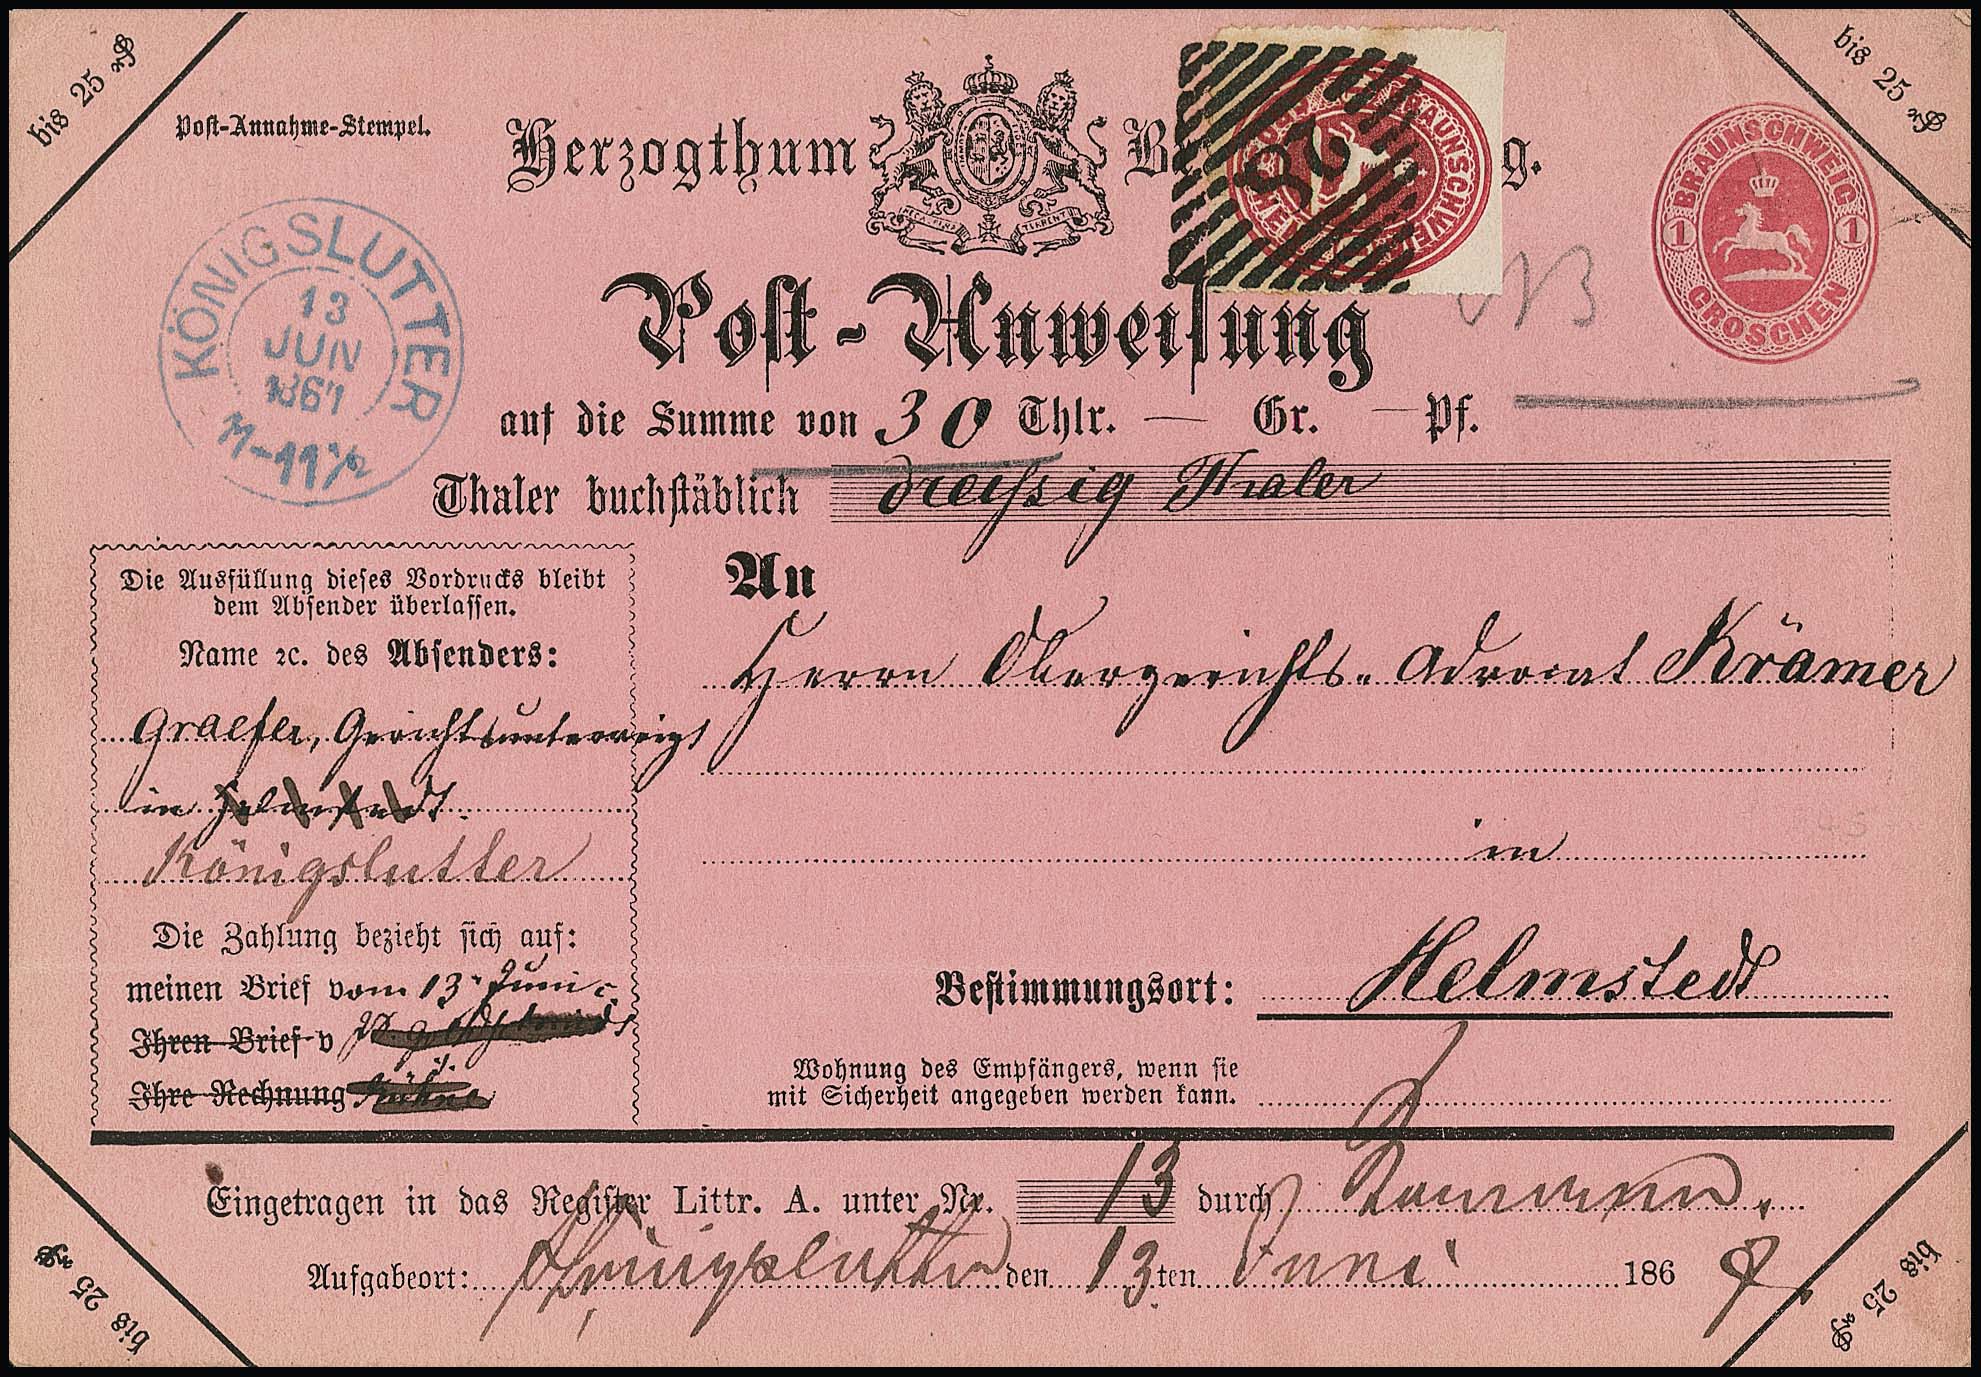 bis 25 ₰
bis 25 ₰
Post-Annahme-Stempel.
Herzogthum B g.
NEC ASPERA TERRENT
BRAUNSCHWEIG
1 1
GROSCHEN
KÖNIGSLUTTER
13
JUN
1867
M-11½
Post-Anweisung
NB
auf die Summe von 30 Thlr. — Gr. — Pf.
Thaler buchstäblich dreißig Thaler
Die Ausfüllung dieses Vordrucks bleibt
dem Absender überlassen.
Name ꝛc. des Absenders:
Graefe, Gerichts
in Helmstedt.
Königslutter
Die Zahlung bezieht sich auf:
meinen Brief vom 13. Juni c
Ihren Brief v
Ihre Rechnung
An
Herrn Obergerichts-Advocat Krämer
in
Bestimmungsort: Helmstedt
Wohnung des Empfängers, wenn sie
mit Sicherheit angegeben werden kann.
Eingetragen in das Register Littr. A. unter Nr. 13 durch
Aufgabeort: Königslutter den 13ten Juni 1867.
bis 25 ₰
bis 25 ₰